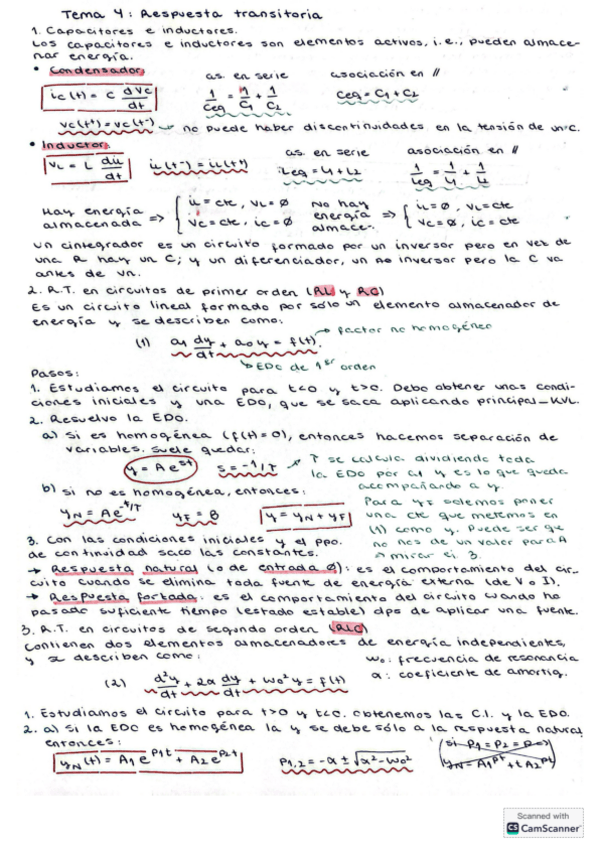 Tema 4: Respuesta transitoria
1. Capacitores e inductores.
Los capacitores e inductores son elementos activos, i.e., pueden almace-
nar energía.
• Condensador as. en serie asociación en //
ic(t) = C dVc/dt 1/Ceq = 1/C1 + 1/C2 Ceq = C1 + C2
Vc(t+) = Vc(t-) no puede haber discontinuidades en la tensión de un C.
• Inductor as. en serie asociación en //
VL = L diL/dt iL(t-) = iL(t+) Leq = L1 + L2 1/Leq = 1/L1 + 1/L2
Hay energía almacenada => { iL = cte, VL = Ø
Vc = cte, ic = Ø
No hay energía almace. => { iL = Ø, VL = cte
Vc = Ø, ic = cte
Un cintegrador es un circuito formado por un inversor pero en vez de
una R hay un C; y un diferenciador, un no inversor pero la C va
antes de vn.
2. R.T. en circuitos de primer orden (RL y RC)
Es un circuito lineal formado por sólo un elemento almacenador de
energía y se describen como:
(1) a1 dy/dt + a0 y = f(t) → factor no homogéneo
↳ EDO de 1er orden
Pasos:
1. Estudiamos el circuito para t<0 y t>0. Debo obtener unas condi-
ciones iniciales y una EDO, que se saca aplicando principal_KVL.
2. Resuelvo la EDO.
a) Si es homogénea (f(t)=0), entonces hacemos separación de
variables. Suele quedar:
y = A e^st s = -1/T T se calcula dividiendo toda
la EDO por a1 y es lo que queda
acompañando a y.
b) si no es homogénea, entonces:
yN = Ae^-t/T yF = B y = yN + yF
Para yF solemos poner
una cte que metemos en
(1) como y. Puede ser que
no nes de un valor para A
→ mirar ej. 3.
3. Con las condiciones iniciales y el ppo.
de continuidad saco las constantes.
→ Respuesta natural (o de entrada Ø): es el comportamiento del cir-
cuito cuando se elimina toda fuente de energía externa (de V o I).
→ Respuesta forzada: es el comportamiento del circuito cuando ha
pasado suficiente tiempo (estado estable) dps de aplicar una fuente.
3. R.T. en circuitos de segundo orden (RLC)
Contienen dos elementos almacenadores de energía independientes,
y se describen como:
w0: frecuencia de resonancia
α: coeficiente de amortig.
(2) d²y/dt + 2α dy/dt + w0² y = f(t)
1. Estudiamos el circuito para t>0 y t<0. obtenemos las C.I. y la EDO.
2. a) Si la EDO es homogénea la y se debe sólo a la respuesta natural
entonces:
yN(t) = A1 e^p1t + A2 e^p2t p1,2 = -α ± √α² - w0²
(si p1 = p2 = p =>)
yN = A1^pt + t A2^pt
Scanned with
CS CamScanner